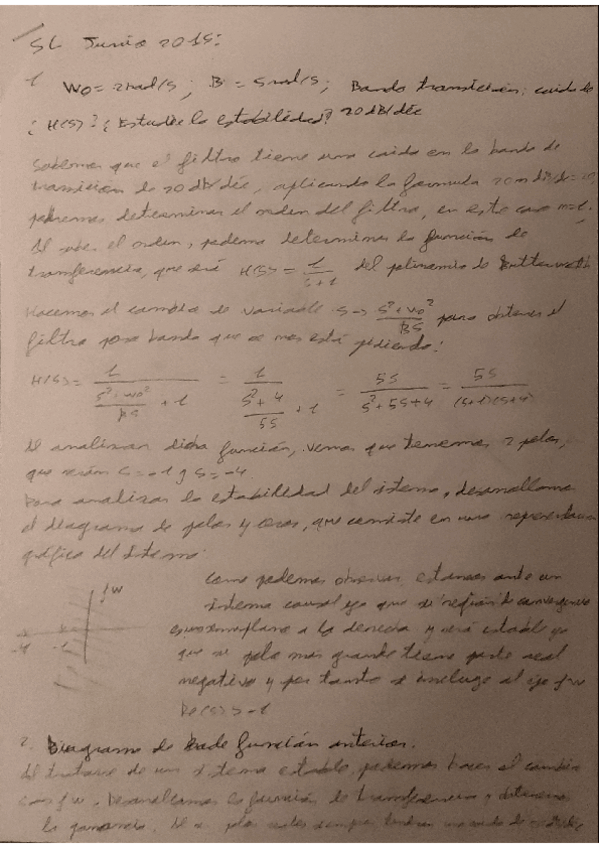 SL Junio 2015:
1. W0 = 2 rad/s ; B = 5 rad/s ; Banda transición: caída de
¿H(s)? ¿Estudie la estabilidad? 20 dB/déc
Sabemos que el filtro tiene una caída en la banda de
transición de 20 dB/déc, aplicando la formula 20n dB/déc = 20,
podremos determinar el orden del filtro, en este caso n=1.
Al saber el orden, podemos determinar la función de
transferencia, que será H(s) = 1/(s+1) del polinomio de Butterworth
Hacemos el cambio de variable s → (s²+w0²)/(BS) para obtener el
filtro paso banda que se nos está pidiendo:
H(s) = 1/((s²+w0²)/(BS) + 1) = 1/((s²+4)/(5S) + 1) = 5S/(s²+5S+4) = 5S/((s+1)(s+4))
Al analizar dicha función, vemos que tenemos 2 polos,
que serán s=-1 y s=-4
Para analizar la estabilidad del sistema, desarrollamos
el diagrama de polos y ceros, que consiste en una representación
gráfica del sistema.
jw
-4 -1
Como podemos observar estamos ante un
sistema causal ya que su región de convergencia
es un semiplano a la derecha y será estable ya
que su polo más grande tiene parte real
negativa y por tanto se incluye al eje jw
Re(s) > -1
2. Diagrama de bode función anterior.
Al tratarse de un sistema estable, podemos hacer el cambio
s = jw. Desarrollamos la función de transferencia y obtenemos
la ganancia.